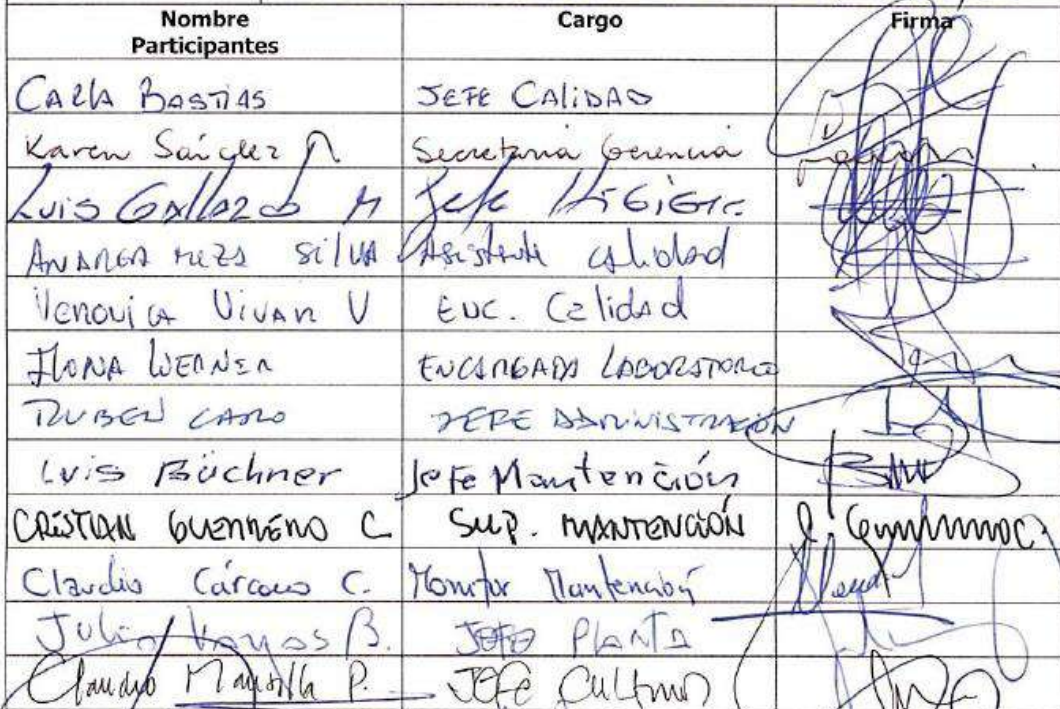 Nombre Participantes Cargo Firma
CARLA BASTIAS JEFE CALIDAD
Karen Secretaria Gerencia
Luis GAllardo M Jefe HiGiene
ANDREA MEZA SILVA Asistente calidad
VERONICA VIVAR V ENC. Calidad
ILONA WERNER ENCARGADA LABORATORIO
RUBEN CARO JEFE ADMINISTRACIÓN
Luis Büchner Jefe Mantención
CRISTIAN GUERRERO C SUP. MANTENCIÓN
Claudio Cárcamo C. Monitor Mantención
Julio Vargas B. JEFE PLANTA
Claudio Mansilla P. JEFE Cultivos